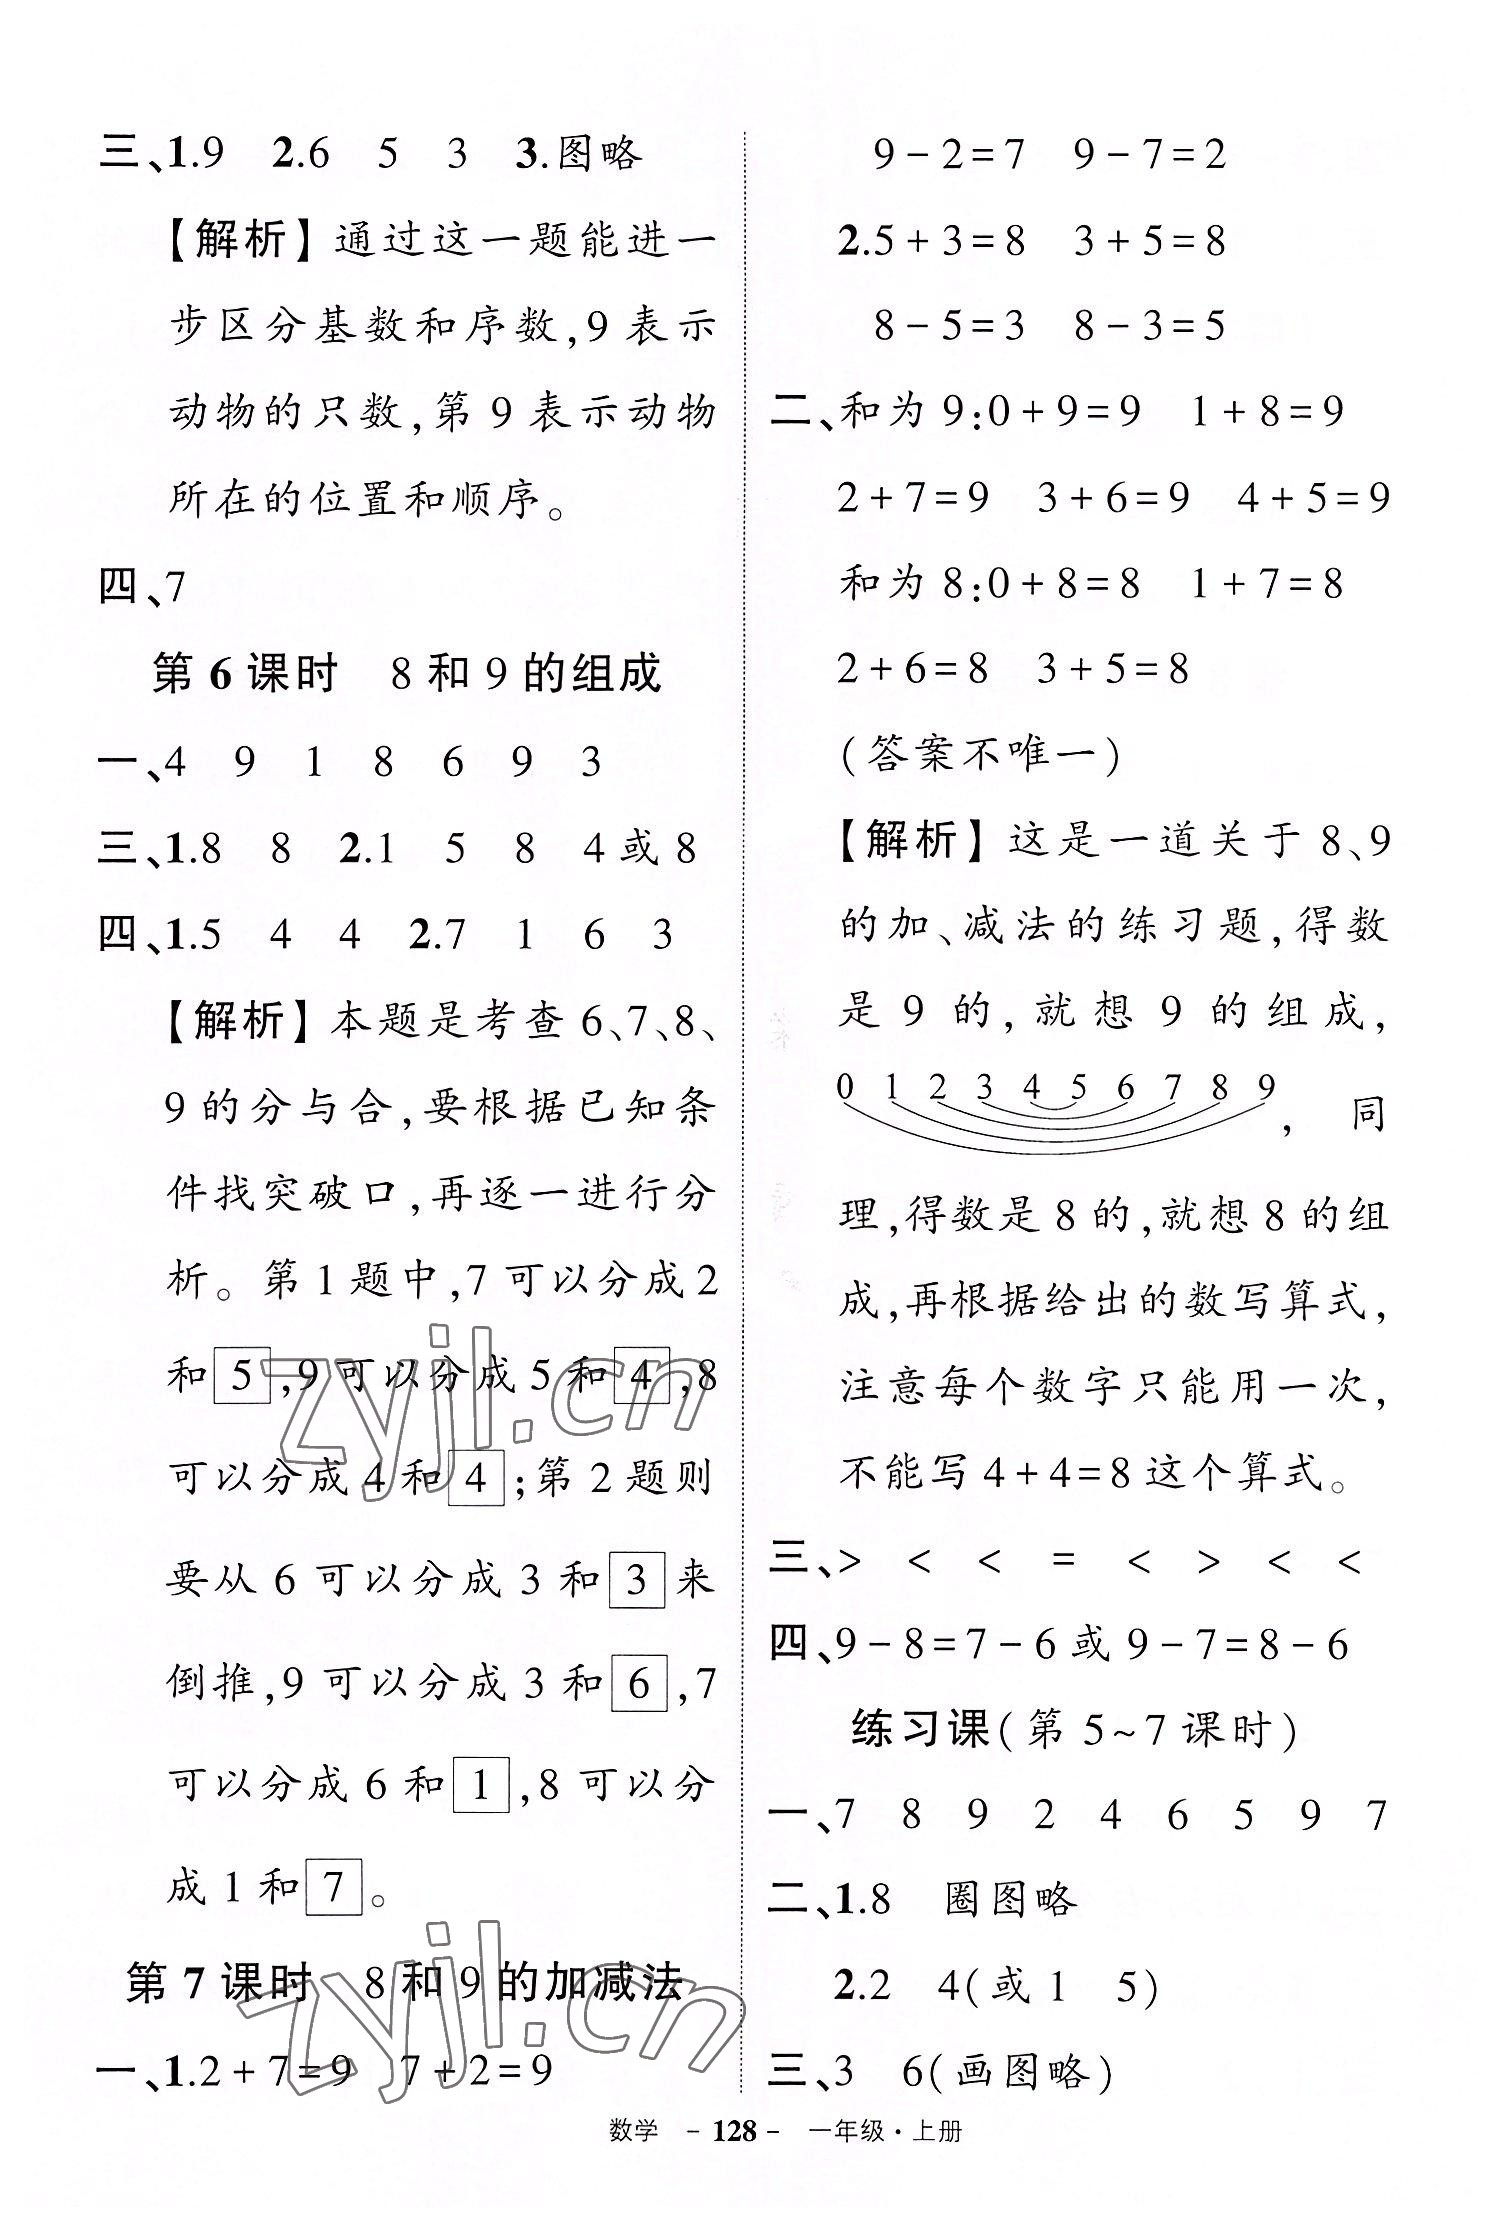 三、1.9 2.6 5 3 3.图略
【解析】通过这一题能进一
步区分基数和序数,9表示
动物的只数,第9表示动物
所在的位置和顺序。
四、7
第6课时 8和9的组成
一、4 9 1 8 6 9 3
三、1.8 8 2.1 5 8 4或8
四、1.5 4 4 2.7 1 6 3
【解析】本题是考查6、7、8、
9的分与合,要根据已知条
件找突破口,再逐一进行分
析。第1题中,7可以分成2
和5,9可以分成5和4,8
可以分成4和4;第2题则
要从6可以分成3和3来
倒推,9可以分成3和6,7
可以分成6和1,8可以分
成1和7。
第7课时 8和9的加减法
一、1.2+7=9 7+2=9
9-2=7 9-7=2
2.5+3=8 3+5=8
8-5=3 8-3=5
二、和为9:0+9=9 1+8=9
2+7=9 3+6=9 4+5=9
和为8:0+8=8 1+7=8
2+6=8 3+5=8
(答案不唯一)
【解析】这是一道关于8、9
的加、减法的练习题,得数
是9的,就想9的组成,
0 1 2 3 4 5 6 7 8 9, 同
理,得数是8的,就想8的组
成,再根据给出的数写算式,
注意每个数字只能用一次,
不能写4+4=8这个算式。
三、> < < = < > < <
四、9-8=7-6或9-7=8-6
练习课(第5~7课时)
一、7 8 9 2 4 6 5 9 7
二、1.8 圈图略
2.2 4(或1 5)
三、3 6(画图略)
数学 -128- 一年级·上册
zyjl.cn
zyjl.cn